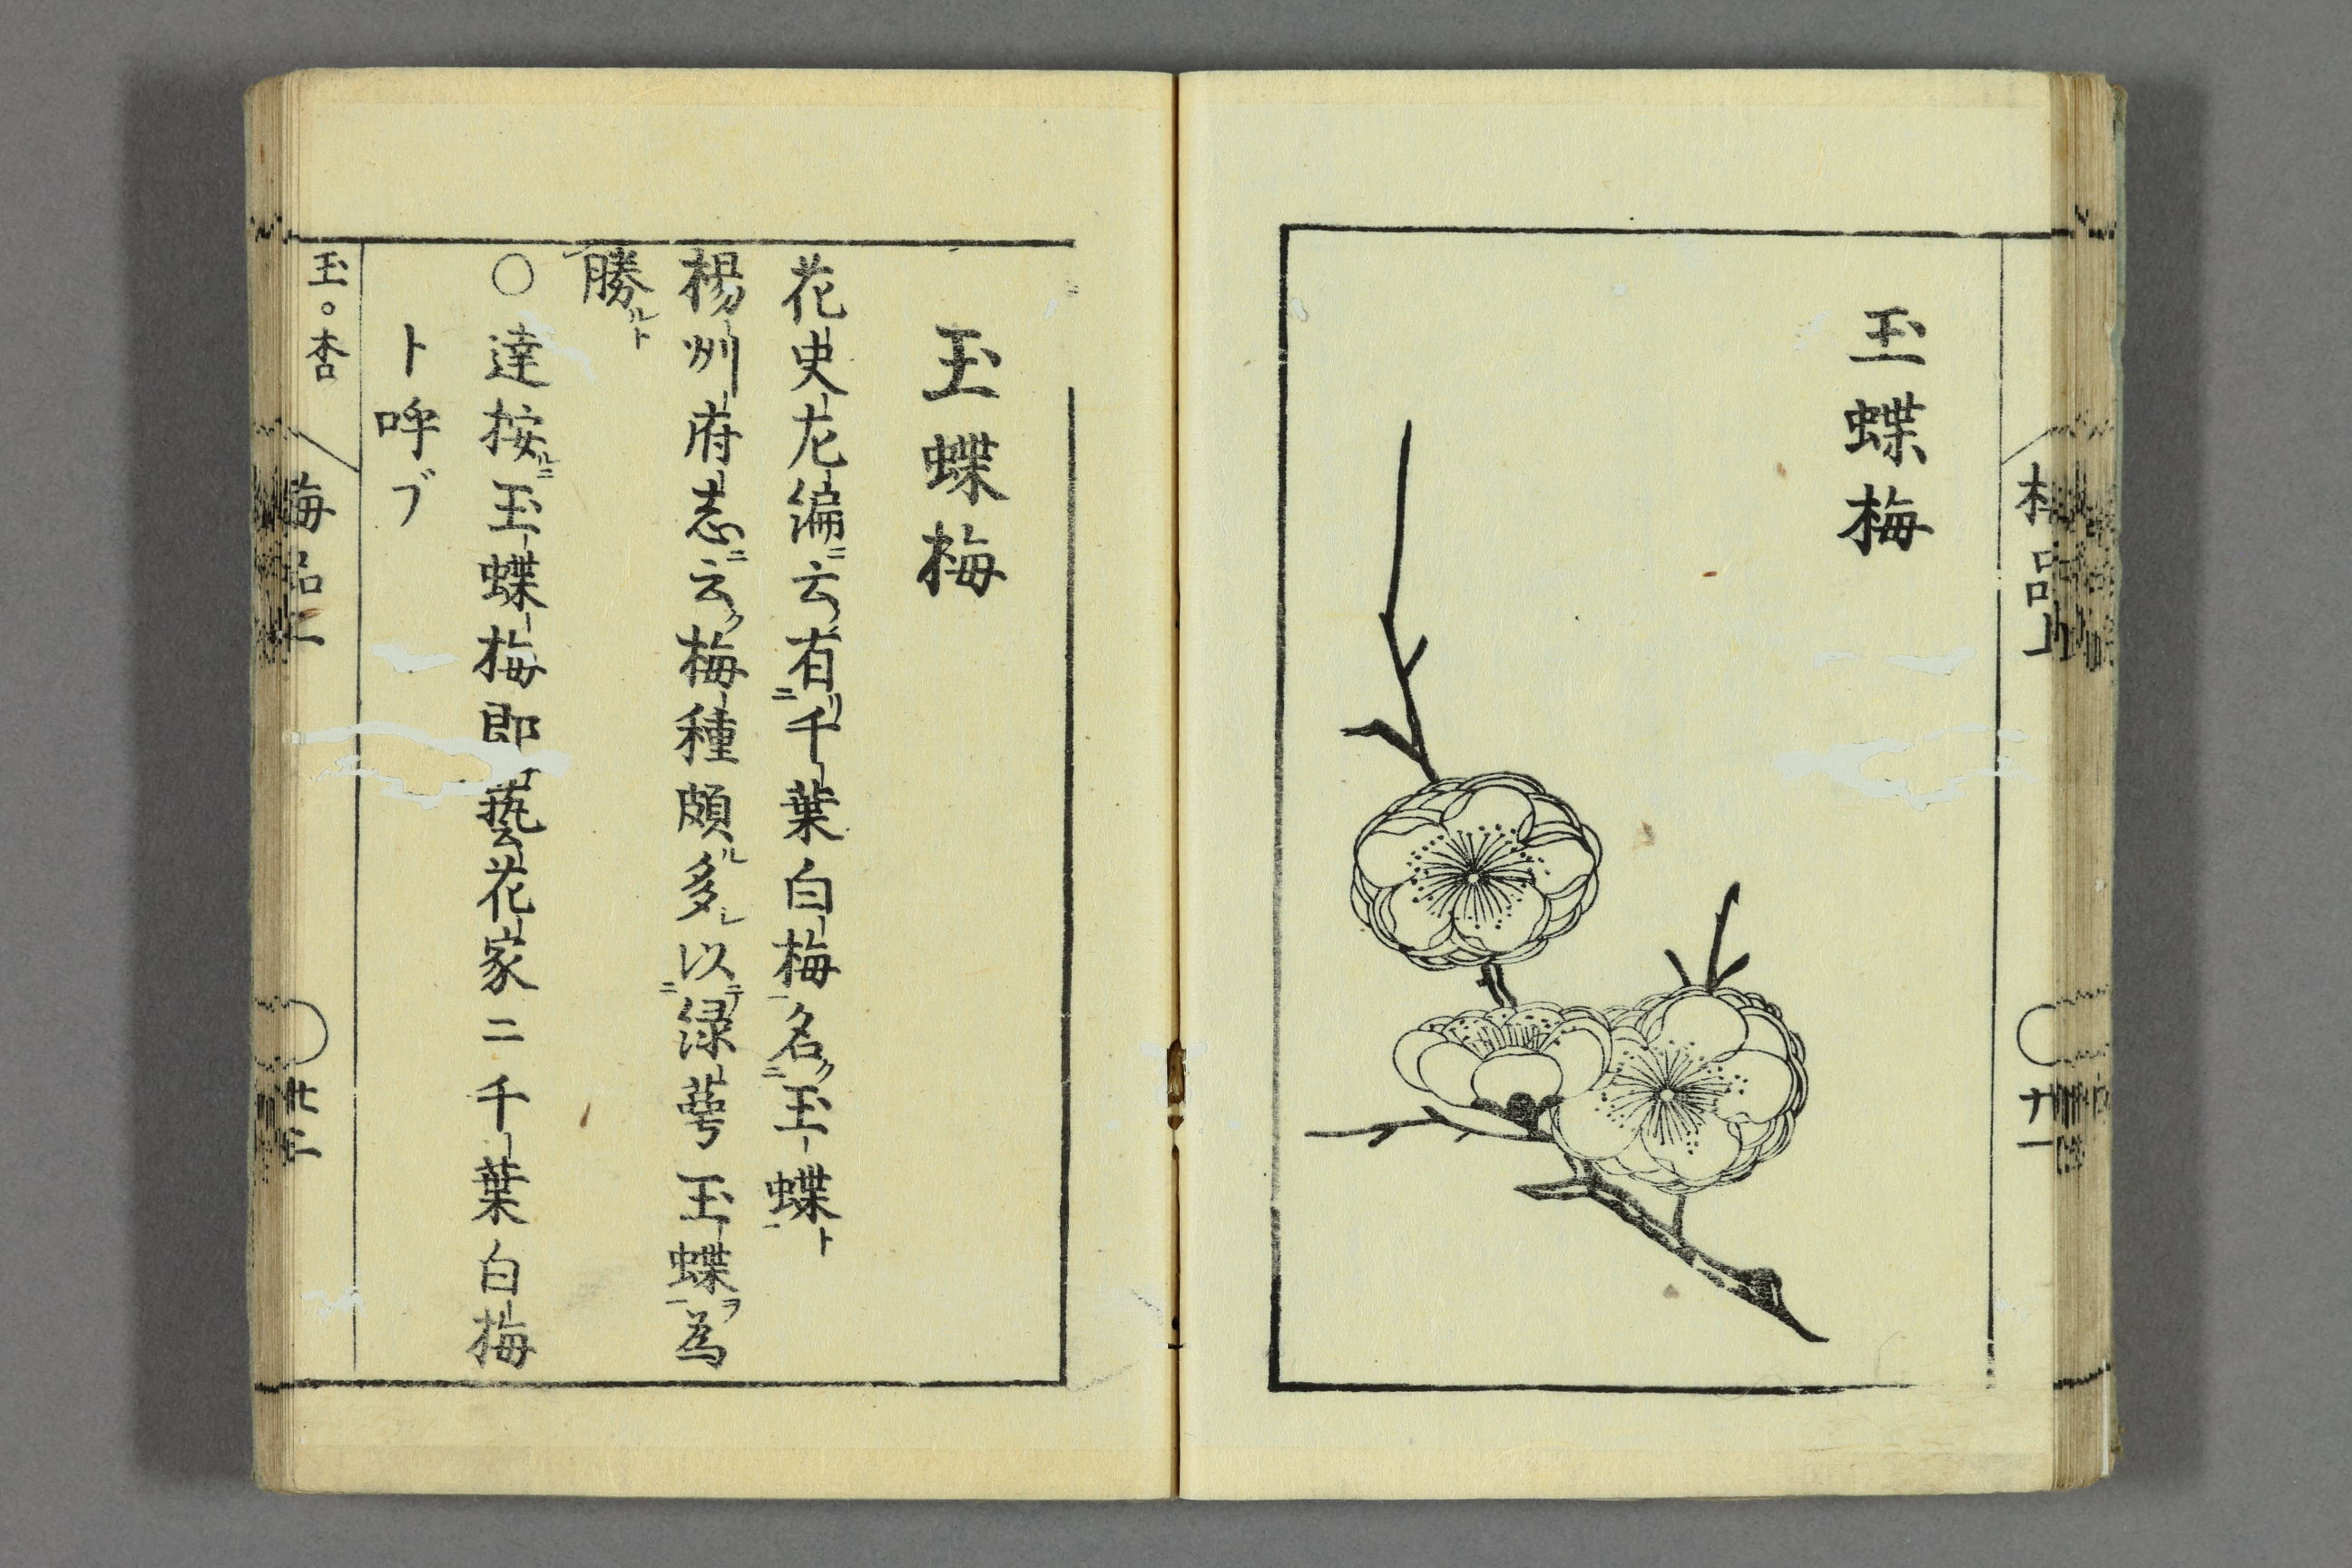 玉蝶梅
品上
廿一
玉蝶梅
花史左編ニ云有リ二千葉白梅一名ク二玉蝶一ト
楊州府志ニ云ク梅種頗ル多シ以テ二緑萼玉蝶ヲ一為
勝ルト
○達按ルニ玉蝶梅即藝花家ニ千葉白梅
ト呼ブ
玉。杏
梅品上